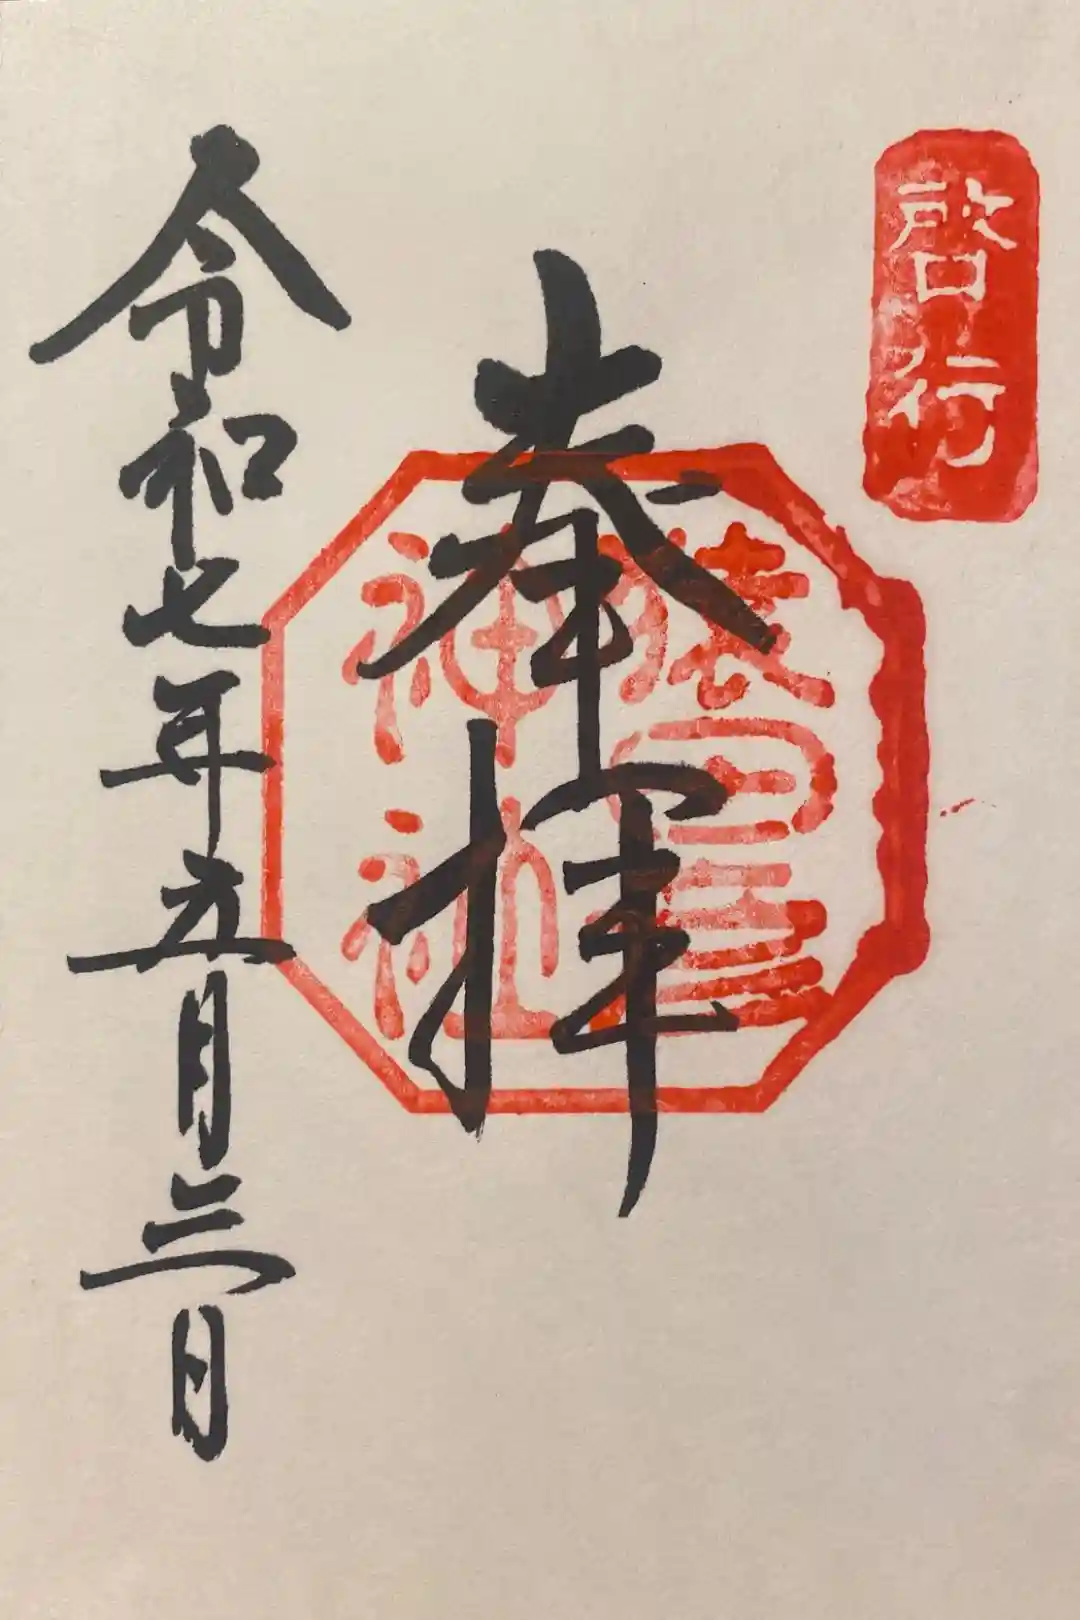 啓行
奉拝
猿田彦
神社
令和七年五月三日